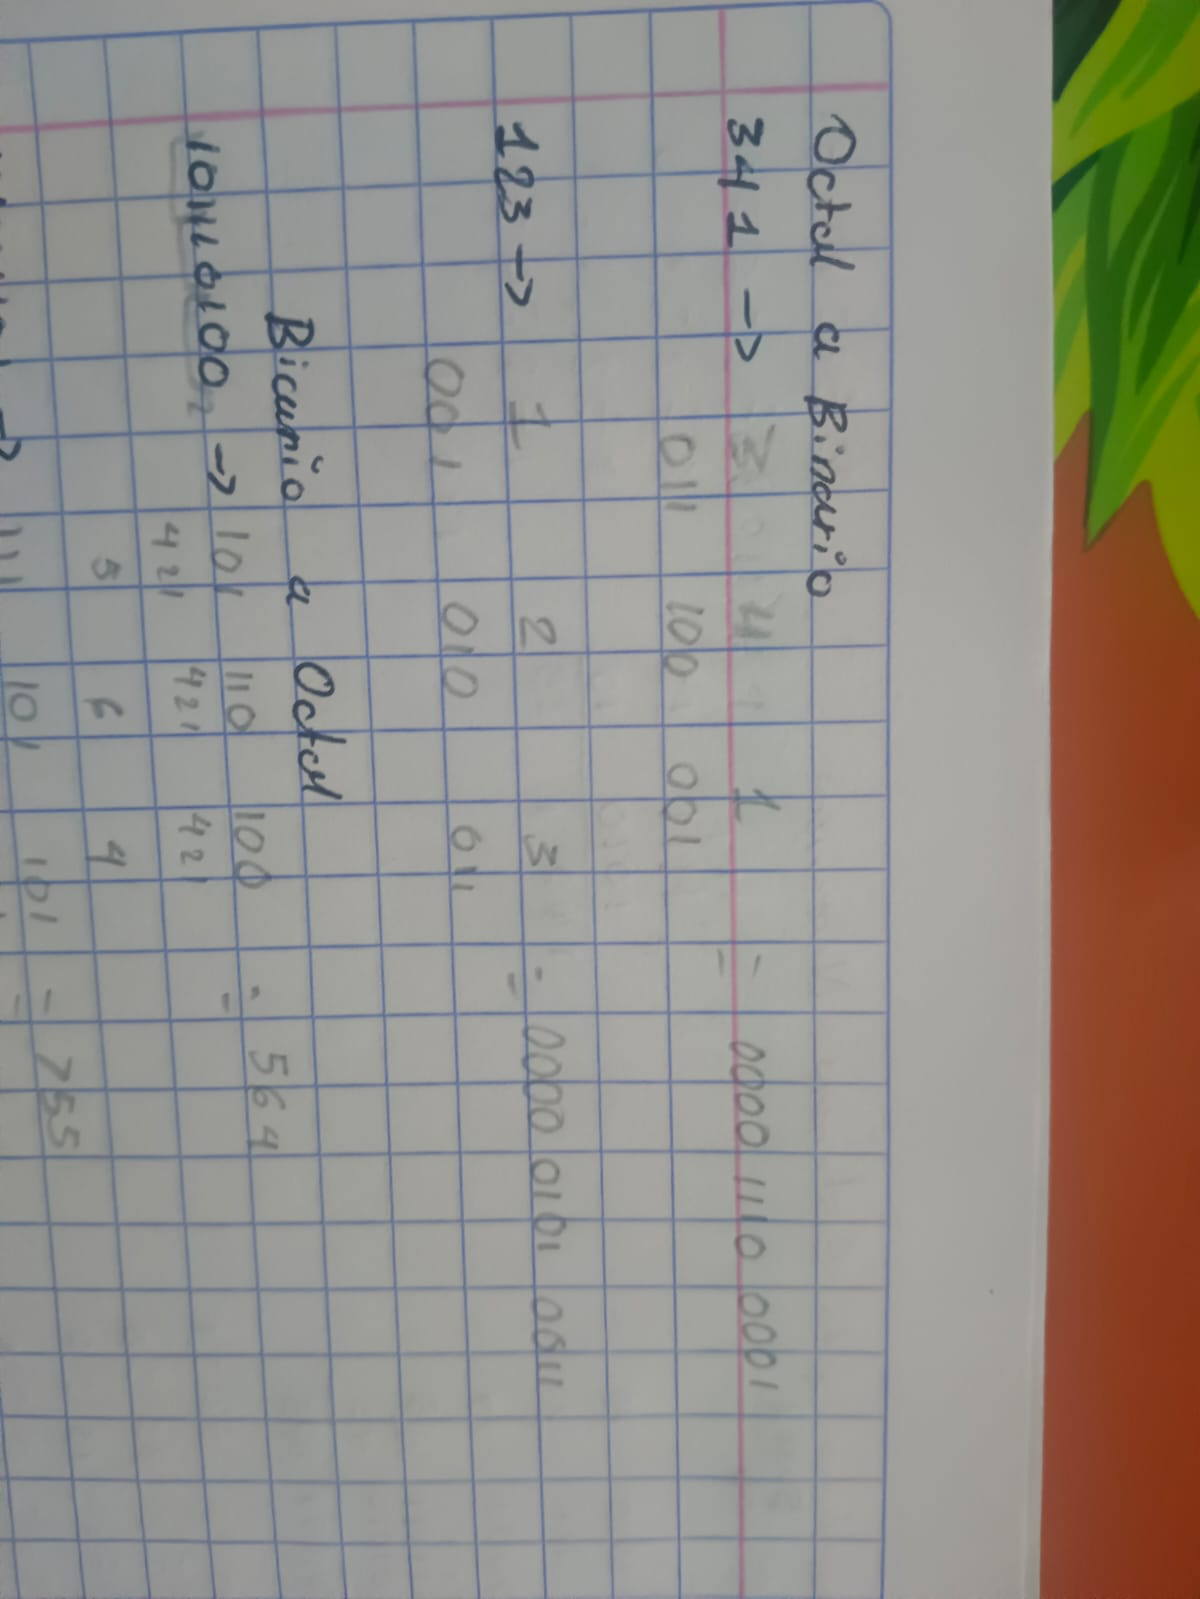 Octal a Binario
341 → 3 4 1 = 0000 1110 0001
011 100 001
123 → 1 2 3 = 0000 0101 0011
001 010 011
Binario a Octal
101110100₂ → 101 110 100 = 564
421 421 421
5 6 4
→ 111 101 101 = 755